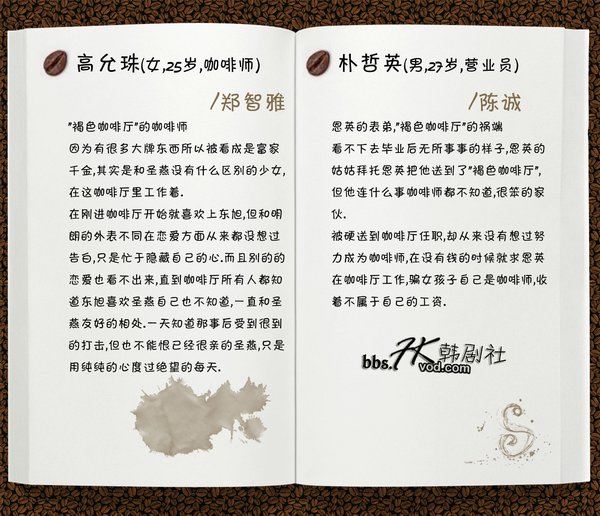 高允珠(女,25岁,咖啡师)
/郑智雅
"褐色咖啡厅"的咖啡师
因为有很多大牌东西所以被看成是富家
千金,其实是和圣燕没有什么区别的少女,
在这咖啡厅里工作着.
在刚进咖啡厅开始就喜欢上东旭,但和明
朗的外表不同在恋爱方面从来都没想过
告白,只是忙于隐藏自己的心.而且别的的
恋爱也看不出来,直到咖啡厅所有人都知
道东旭喜欢圣燕自己也不知道,一直和圣
燕友好的相处.一天知道那事后受到很到
的打击,但也不能恨已经很亲的圣燕,只是
用纯纯的心度过绝望的每天.
朴哲英(男,27岁,营业员)
/陈诚
恩英的表弟,"褐色咖啡厅"的祸端
看不下去毕业后无所事事的样子,恩英的
姑姑拜托恩英把他送到了"褐色咖啡厅",
但他连什么事咖啡师都不知道,很笨的家
伙.
被硬送到咖啡厅任职,却从来没有想过努
力成为咖啡师,在没有钱的时候就求恩英
在咖啡厅工作,骗女孩子自己是咖啡师,收
着不属于自己的工资.
bbs.HK韩剧社
vod.com
S